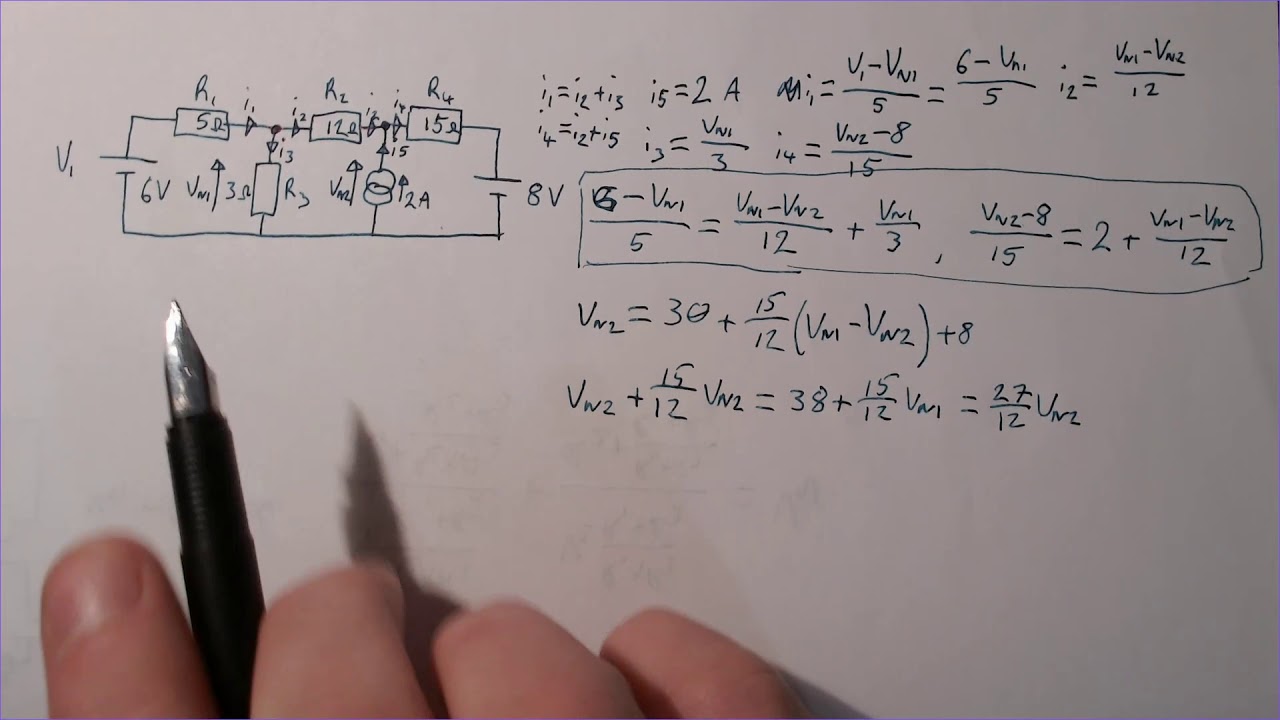 R₁ i₁ i₂ R₂ i₂ i₄ R₄
5Ω 12Ω 15Ω
i₃ i5
V₁ 6V V_N1 3Ω R₃ V_N2 2A 8V
i₁=i₂+i₃ i5=2 A i₁=(V₁-V_N1)/5=(6-V_N1)/5 i₂=(V_N1-V_N2)/12
i₄=i₂+i5 i₃=V_N1/3 i₄=(V_N2-8)/15
(6-V_N1)/5=(V_N1-V_N2)/12+V_N1/3, (V_N2-8)/15=2+(V_N1-V_N2)/12
V_N2=30+15/12(V_N1-V_N2)+8
V_N2+15/12V_N2=38+15/12V_N1=27/12V_N2